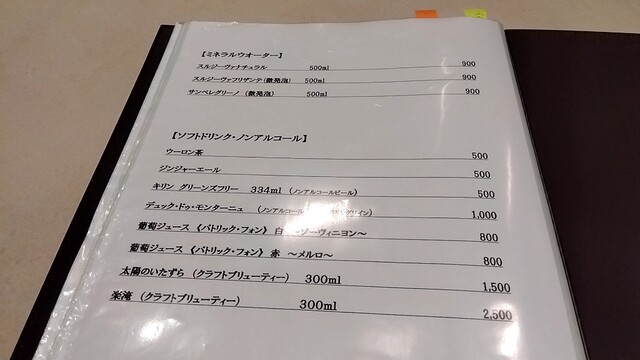 【ミネラルウオーター】
スルジーヴァナチュラル 500ml 900
スルジーヴァフリザンテ(微発泡) 500ml 900
サンペレグリーノ (微発泡) 500ml 900
【ソフトドリンク・ノンアルコール】
ウーロン茶 500
ジンジャーエール 500
キリン グリーンズフリー 334ml (ノンアルコールビール) 500
デュック・ドゥ・モンターニュ (ノンアルコール 1,000
葡萄ジュース 《パトリック・フォン》 白 ~ソーヴィニヨン~ 800
葡萄ジュース 《パトリック・フォン》 赤 ~メルロ~ 800
太陽のいたずら (クラフトブリューティー) 300ml 1,500
(クラフトブリューティー) 300ml 2,500